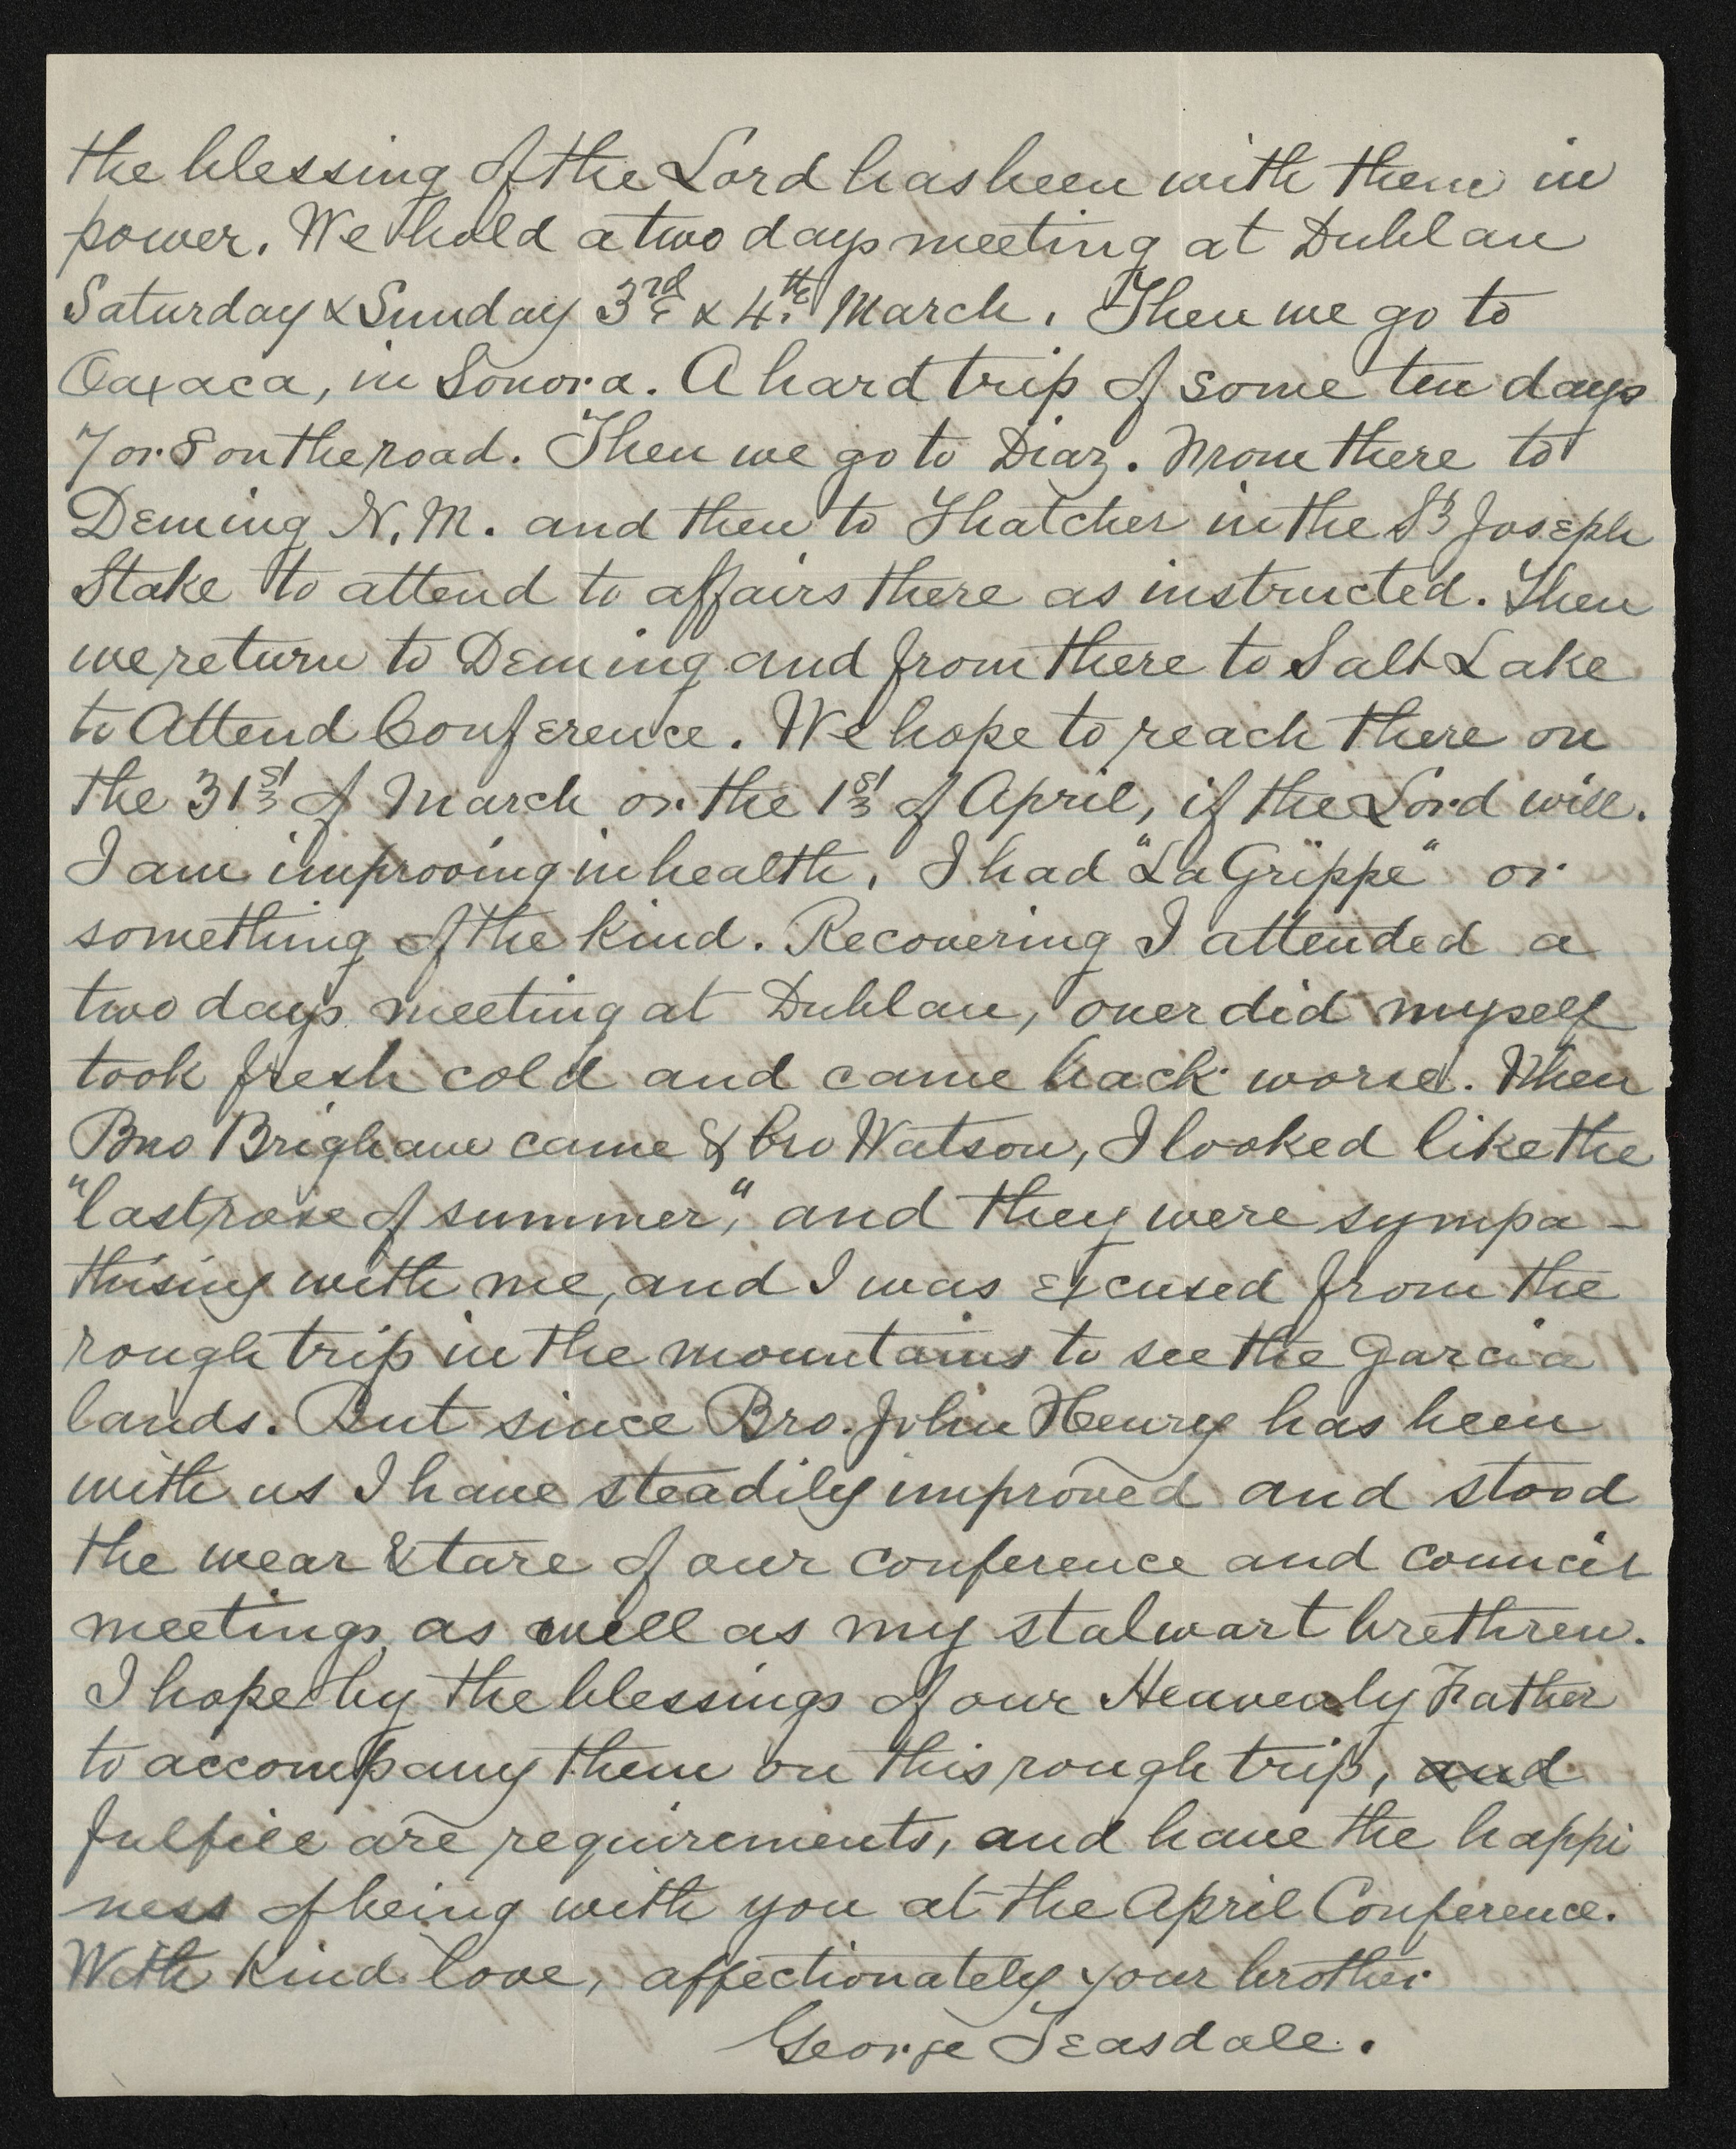 the blessing of the Lord has been with them in
power. We hold a two days meeting at Dublan
Saturday & Sunday 3rd & 4th March. Then we go to
Oaxaca, in Sonora. A hard trip of some ten days
7 or 8 on the road. Then we go to Diaz. From there to
Deming N. M. and then to Thatcher in the St Joseph
Stake to attend to affairs there as instructed. Then
we return to Deming and from there to Salt Lake
to Attend Conference. We hope to reach there on
the 31st of March or the 1st of April, if the Lord will.
I am improving in health. I had "La Grippe" or
something of the kind. Recovering I attended a
two days meeting at Dublan, over did myself
took fresh cold and came back worse. When
Bro Brigham came & bro Watson, I looked like the
"last rose of summer," and they were sympa-
thising with me, and I was excused from the
rough trip in the mountains to see the Garcia
lands. But since Bro. John Henry has been
with us I have steadily improved and stood
the wear & tare of our conference and council
meetings as well as my stalwart brethren.
I hope by the blessings of our Heavenly Father
to accompany them on this rough trip, and
fulfill are requirements, and have the happi
ness of being with you at the April Conference.
With kind love, affectionately your brother
George Teasdale.